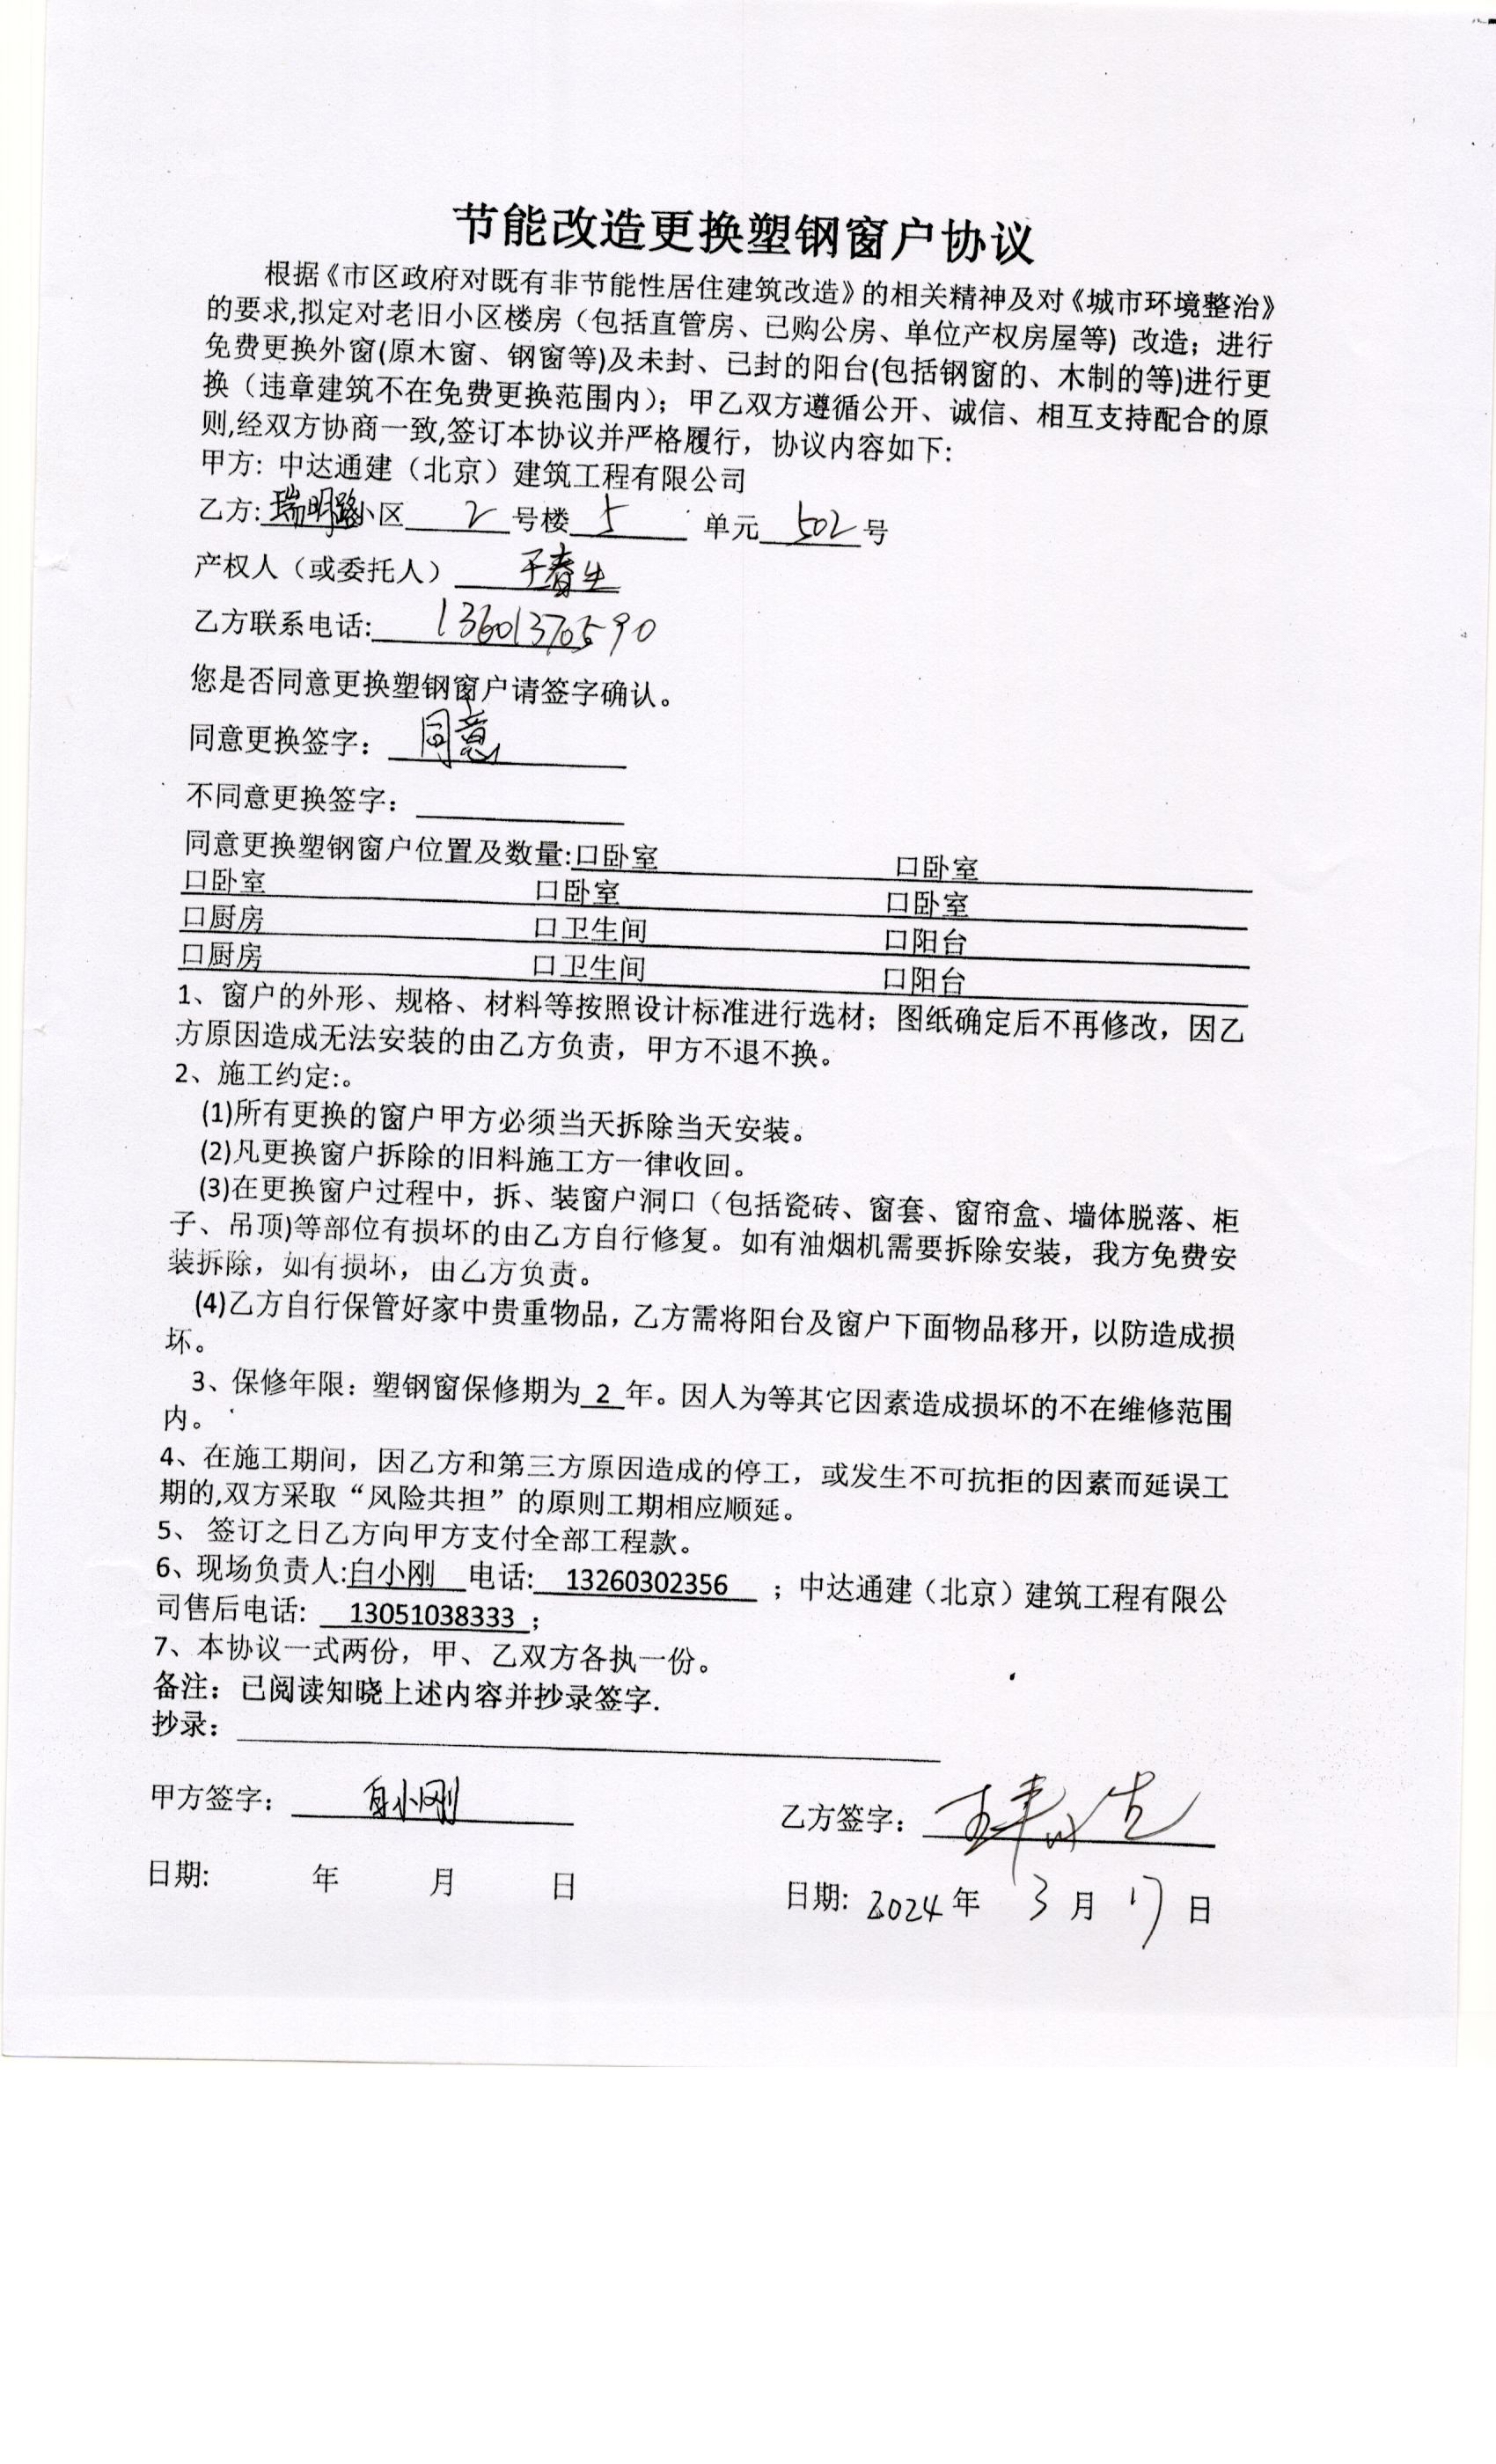 节能改造更换塑钢窗户协议
根据《市区政府对既有非节能性居住建筑改造》的相关精神及对《城市环境整治》
的要求,拟定对老旧小区楼房（包括直管房、已购公房、单位产权房屋等）改造；进行
免费更换外窗(原木窗、钢窗等)及未封、已封的阳台(包括钢窗的、木制的等)进行更
换（违章建筑不在免费更换范围内）；甲乙双方遵循公开、诚信、相互支持配合的原
则,经双方协商一致,签订本协议并严格履行，协议内容如下：
甲方：中达通建（北京）建筑工程有限公司
乙方:瑞明路小区 2 号楼 5 单元 502 号
产权人（或委托人） 于春生
乙方联系电话: 13601370590
您是否同意更换塑钢窗户请签字确认。
同意更换签字： 同意
不同意更换签字：
同意更换塑钢窗户位置及数量:口卧室 口卧室
口卧室 口卧室 口卧室
口厨房 口卫生间 口阳台
口厨房 口卫生间 口阳台
1、窗户的外形、规格、材料等按照设计标准进行选材；图纸确定后不再修改，因乙
方原因造成无法安装的由乙方负责，甲方不退不换。
2、施工约定:。
(1)所有更换的窗户甲方必须当天拆除当天安装。
(2)凡更换窗户拆除的旧料施工方一律收回。
(3)在更换窗户过程中，拆、装窗户洞口（包括瓷砖、窗套、窗帘盒、墙体脱落、柜
子、吊顶)等部位有损坏的由乙方自行修复。如有油烟机需要拆除安装，我方免费安
装拆除，如有损坏，由乙方负责。
(4)乙方自行保管好家中贵重物品，乙方需将阳台及窗户下面物品移开，以防造成损
坏。
3、保修年限：塑钢窗保修期为 2 年。因人为等其它因素造成损坏的不在维修范围
内。
4、在施工期间，因乙方和第三方原因造成的停工，或发生不可抗拒的因素而延误工
期的,双方采取“风险共担”的原则工期相应顺延。
5、 签订之日乙方向甲方支付全部工程款。
6、现场负责人:白小刚 电话: 13260302356 ；中达通建（北京）建筑工程有限公
司售后电话: 13051038333 ；
7、本协议一式两份，甲、乙双方各执一份。
备注：已阅读知晓上述内容并抄录签字.
抄录：
甲方签字： 白小刚
乙方签字：
日期: 年 月 日
日期: 2024 年 3 月 17 日